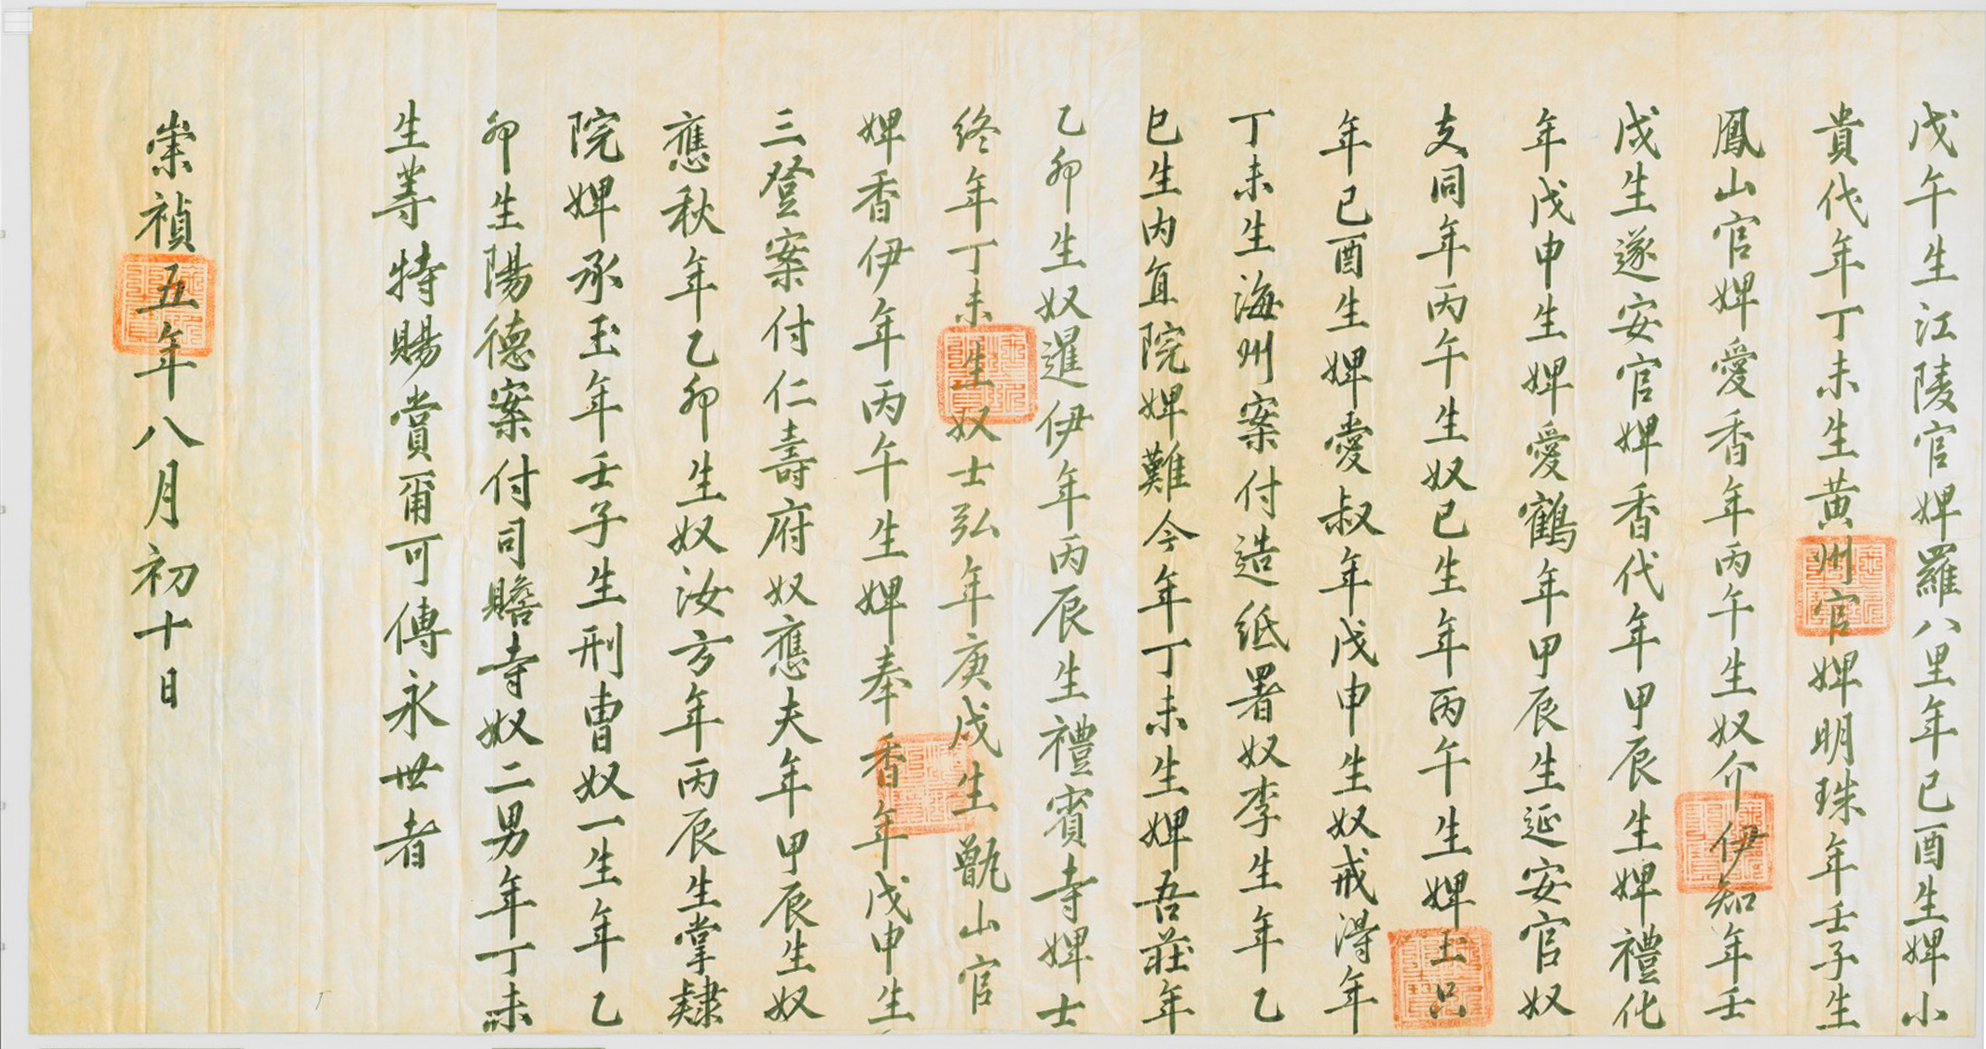 戊午生江陵官婢羅八里年已酉生婢小
貴代年丁未生黃州官婢明珠年壬子生
鳳山官婢愛香年丙午生奴介伊知年壬
戌生遂安官婢香代年甲辰生婢禮化
年戊申生婢愛鶴年甲辰生延安官奴
支同年丙午生奴已生年丙午生婢玉只
年已酉生婢愛叔年戊申生奴戒淂年
丁未生海州案付造紙署奴李生年乙
巳生内𣅜院婢難今年丁未生婢吾莊年
乙卯生奴暹伊年丙辰生禮賓寺婢士
終年丁未生奴士弘年庚戌生甑山官
婢香伊年丙午生婢奉香年戊申生
三登案付仁壽府奴應夫年甲辰生奴
應秋年乙卯生奴汝方年丙辰生掌隸
院婢承玉年壬子生刑曹奴一生年乙
卯生陽德案付司贍寺奴二男年丁未
生等特賜賞爾可傳永世者
崇禎五年八月初十日